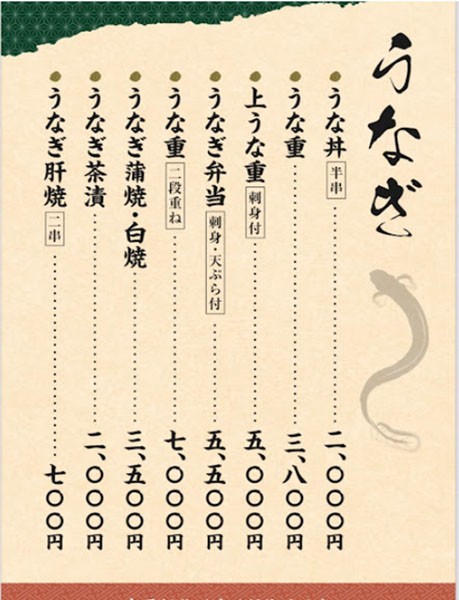 うなぎ
うな丼 半串 二、〇〇〇円
うな重 三、八〇〇円
上うな重 刺身付 五、〇〇〇円
うなぎ弁当 刺身・天ぷら付 五、五〇〇円
うな重 二段重ね 七、〇〇〇円
うなぎ蒲焼・白焼 三、五〇〇円
うなぎ茶漬 二、〇〇〇円
うなぎ肝焼 二串 七〇〇円